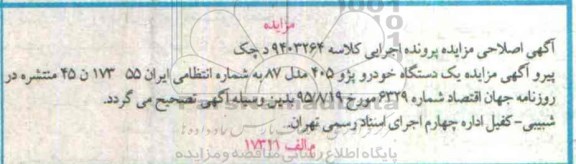 مزایده
آگهی اصلاحی مزایده پرونده اجرایی کلاسه ۹۴۰۳۲۶۴ د چک
پیرو آگهی مزایده یک دستگاه خودرو پژو ۴۰۵ مدل ۸۷ به شماره انتظامی ایران ۵۵ ۱۷۳ ن ۴۵ منتشره در
روزنامه جهان اقتصاد شماره ۶۳۲۹ مورخ ۹۵/۸/۱۹ بدین وسیله آگهی تصحیح می گردد.
شبیبی- کفیل اداره چهارم اجرای اسناد رسمی تهران.
م الف ۱۷۳۱۱
پایگاه اطلاع رسانی مناقصه و مزایده